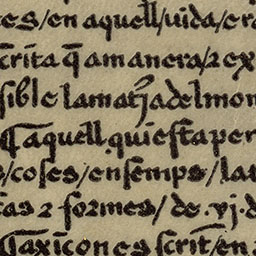 es / en aquell / vida / era
crita q̄ amanera / ⁊ ex
sible lamat̄ia del mon
¶ aquell. qui esta per
/ coses / en semps / la
as ⁊ formes / de .vj. d
¶ axicon es scrit̄ / en